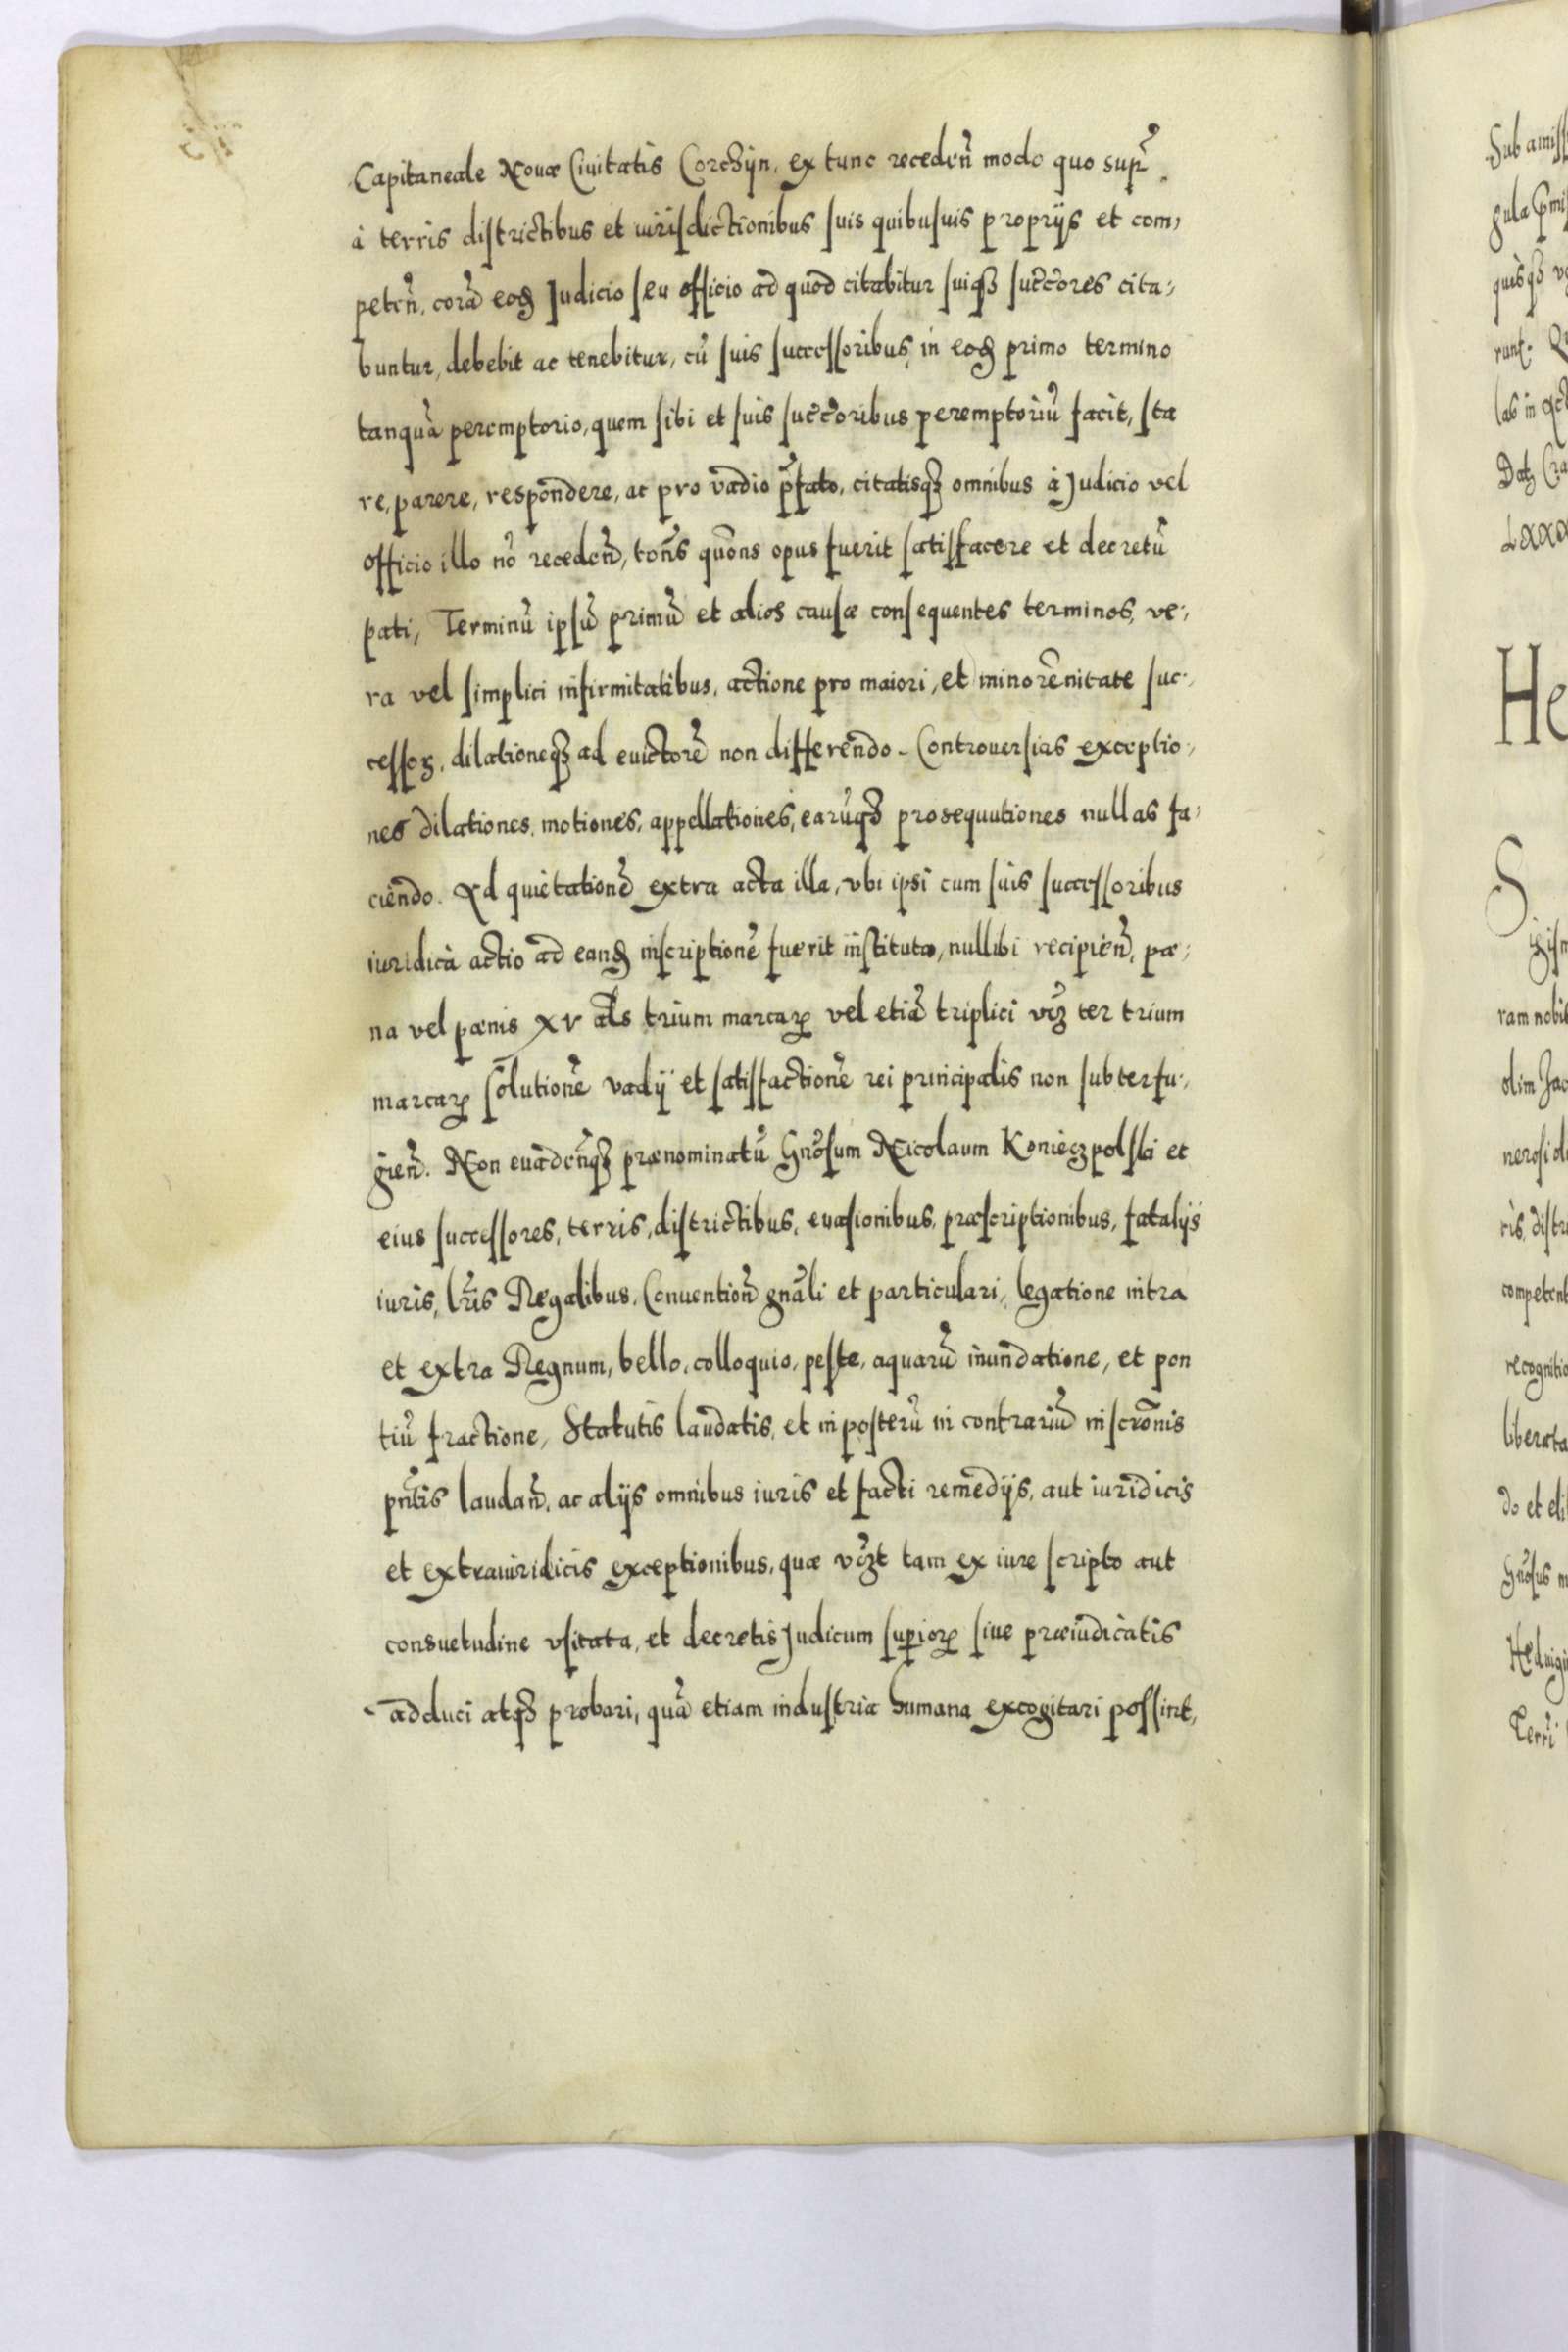 Capitaneale Nouæ Ciuitatis Corchÿn, ex tunc recedeñ modo quo supr̃.
à terris districtibus et iurisdictionibus suis quibusuis proprijs et com,
peteñ, corã eod[em] Judicio seu officio ad quod citabitur suiqȝ succ̃ores cita,
buntur, debebit ac tenebitur, cũ suis successoribus, in eod[em] primo termino
tanquã peremptorio, quem sibi et suis succ̃oribus peremptoriũ facit, sta
re, parere, respondere, ac pro vadio p̃fato, citatisqȝ omnibus à Judicio vel
officio illo nõ recedeñ, toñs quõns opus fuerit satisfacere et decretũ
pati, Terminũ ipsũ primũ et alios causæ consequentes terminos, ve,
ra vel simplici infirmitatibus, actione pro maiori, et minorẽnitate suc,
cessoꝝ, dilationeqȝ ad euictorẽ non differendo. Controuersias exceptio,
nes dilationes, motiones, appellationes, earũqȝ prosequutiones nullas fa,
ciendo. Ad quietationẽ extra acta illa, vbi ipsi cum suis successoribus
iuridica actio ad eand[em] inscriptionẽ fuerit instituta, nullibi recipieñ, pæ,
na vel pænis xv als trium marcaꝝ vel etiã triplici vcȝ ter trium
marcaꝝ solutionẽ vadij et satisfactionẽ rei principalis non subterfu,
gieñ. Non euadeñqȝ prænominatũ Gnõsum Nicolaum Konieczpolski et
eius successores, terris, districtibus, euasionibus, præscriptionibus, fatalijs
iuris, lr̃is Regalibus, Conuentioñ gnãli et particulari, legatione intra
et extra Regnum, bello, colloquio, peste, aquarũ inundatione, et pon
tiũ fractione, Statutis laudatis, et in posterũ in contrariũ inscrõnis
pñtis laudañ, ac alijs omnibus iuris et facti remedijs, aut iuridicis
et extraiuridicis exceptionibus, quæ vcȝt tam ex iure scripto aut
consuetudine vsitata, et decretis Judicum superioꝝ siue præiudicatis
adduci atqȝ probari, quã etiam industria humana excogitari possint,